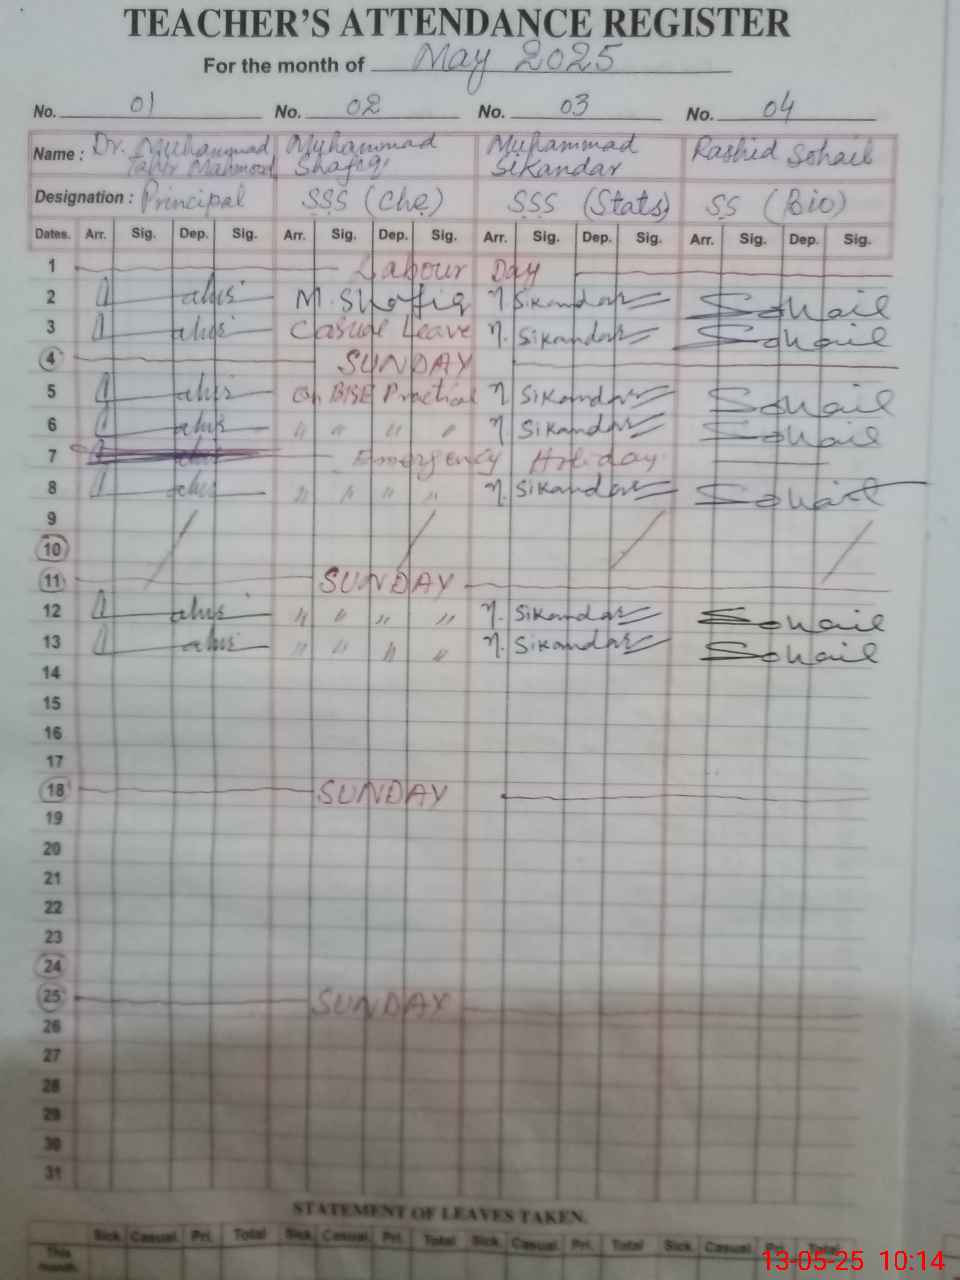 TEACHER'S ATTENDANCE REGISTER
For the month of May 2025
No. 01 No. 02 No. 03 No. 04
Name : Dr. Muhammad Tahir Mahmood Muhammad Shafiq Muhammad Sikandar Rashid Sohail
Designation : Principal SSS (Che) SSS (Stats) SS (Bio)
Dates. Arr. Sig. Dep. Sig. Arr. Sig. Dep. Sig. Arr. Sig. Dep. Sig. Arr. Sig. Dep. Sig.
1 Labour Day
2 M. Shafiq M. Sikandar Sohail
3 Casual Leave M. Sikandar Sohail
4 SUNDAY
5 On BISE Practical M. Sikandar Sohail
6 " " " " M. Sikandar Sohail
7 Emergency Holiday
8 " " " " M. Sikandar Sohail
9
10
11 SUNDAY
12 " " " " M. Sikandar Sohail
13 " " " " M. Sikandar Sohail
14
15
16
17
18 SUNDAY
19
20
21
22
23
24
25 SUNDAY
26
27
28
29
30
31
STATEMENT OF LEAVES TAKEN.
Sick. Casual. Pri. Total Sick. Casual. Pri. Total Sick. Casual. Pri. Total Sick. Casual. Pri. Total
This month.
13-05-25 10:14